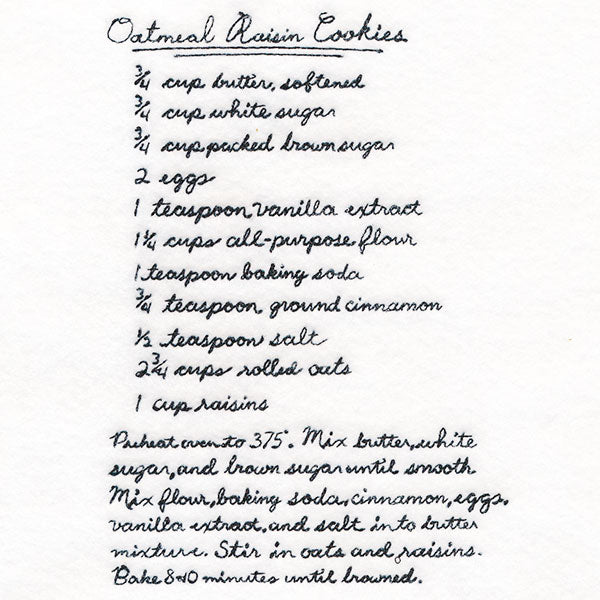 Oatmeal Raisin Cookies
3/4 cup butter, softened
3/4 cup white sugar
3/4 cup packed brown sugar
2 eggs
1 teaspoon vanilla extract
1 1/4 cups all-purpose flour
1 teaspoon baking soda
3/4 teaspoon ground cinnamon
1/2 teaspoon salt
2 3/4 cups rolled oats
1 cup raisins
Preheat oven to 375°. Mix butter, white
sugar, and brown sugar until smooth
Mix flour, baking soda, cinnamon, eggs,
vanilla extract, and salt into butter
mixture. Stir in oats and raisins.
Bake 8-10 minutes until browned.